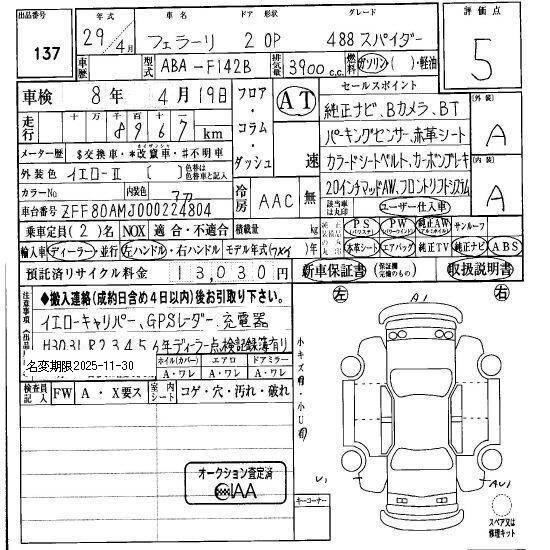 出品番号 年式 車名 ドア 形状 グレード 評価点
137 29年4月 フェラーリ 2 OP 488スパイダー 5
車歴 型式 ABA-F142B 排気量 3900c.c. 燃料 ガソリン( )・軽油
車検 8年 4月19日 フロア・コラム・ダッシュ AT 速 セールスポイント
純正ナビ、Bカメラ、BT
走行 十万 万 千 百 十 一 km
パーキングセンサー、赤革シート
メーター歴 $交換車・*改竄車・#不明車
カラードシートベルト、カーボンブレーキ
外装色 イエローII 色替は色替車と記入
20インチマッドAW、フロントリフトシステム
カラーNo 内装色 アカ 冷房 AAC 無
該当車は丸印 ユーザー仕入車
車台番号 ZFF80AMJ000224804
外装 A
内装 A
乗車定員(2)名 NOX 適合・不適合 積載量 kg
PS(パワステ) PW(パワーウインドウ) 純正AW(アルミホイール) サンルーフ
輸入車 ディーラー・並行 左ハンドル・右ハンドル モデル年式( )年
本革シート エアバッグ 純正TV 純正ナビ ABS
預託済リサイクル料金 13,030円
新車保証書(保証欄完備のもの) 取扱説明書
注意事項(出品店)
◆搬入連絡(成約日含め4日以内)後お引取り下さい。
イエローキャリパー、GPSレーダー、充電器
H30 31 R2 3 4 5 6年ディーラー点検記録簿有り
名変期限2025-11-30
ホイル(カバー) エアロ ドアミラー
A・ワレ A・ワレ A・ワレ
検査員記入 FW A・X要ス 室内シート コゲ・穴・汚れ・破れ
左 右
A1
小キズ有・小U有
U1
AU1
オークション査定済
AA
キーコーナー
スペア又は修理キット